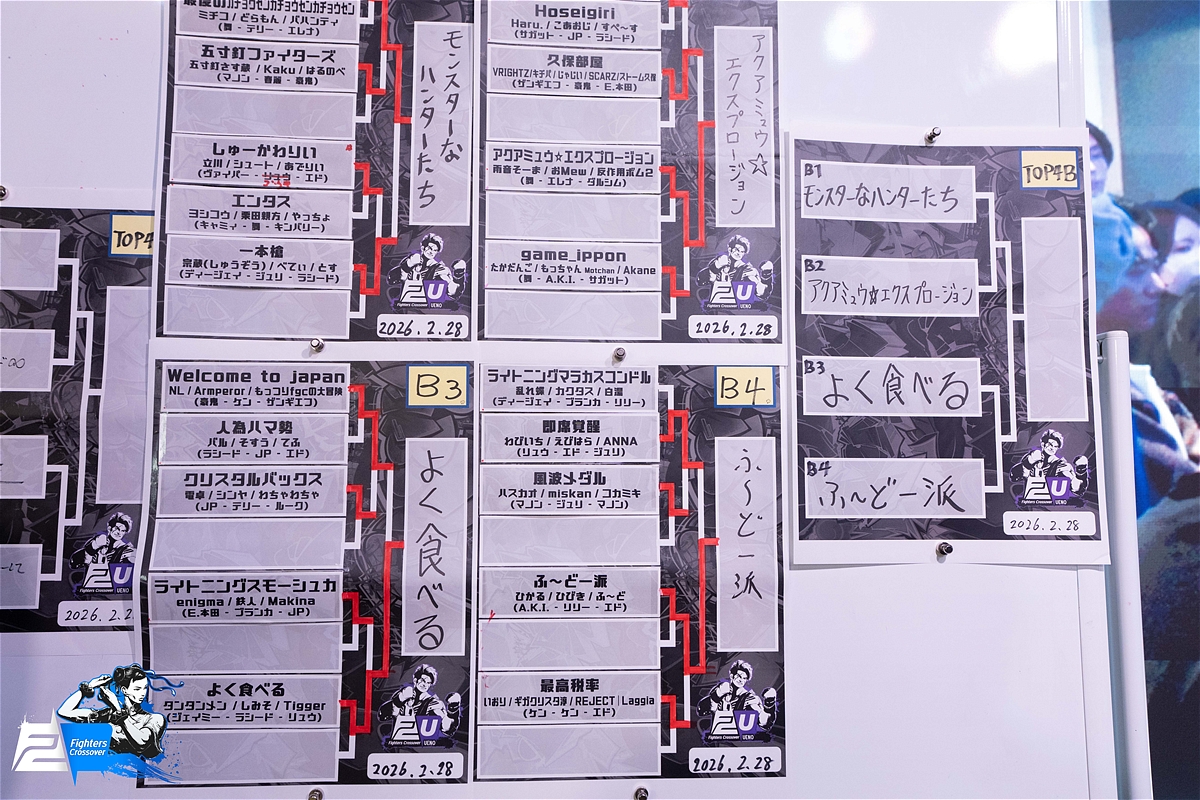 ミチコ / どらもん / パハンティ
(舞 - テリー - エレナ)
五寸釘ファイターズ
五寸釘さす蔵 / Kaku / はるのべ
(マノン - 春麗 - 豪鬼)
しゅーかわりぃ
立川 / シュート / あでりい
(ヴァイパー - リュウ - エド)
エンタス
ヨシコウ / 栗田頼方 / やっちょ
(キャミィ - 舞 - キンバリー)
一本槍
宗蔵(しゅうぞう) / べてぃ / とす
(ディージェイ - ジュリ - ラシード)
モンスターな
ハンターたち
Fighters Crossover UENO
2026.2.28
Hoseigiri
Haru. / こあおじ / すぺ〜す
(サガット - JP - ラシード)
久保部屋
VRIGHTZ/キチパ/じゃじい/SCARZ/ストーム久保
(ザンギエフ - 豪鬼 - E.本田)
アクアミュウ☆エクスプロージョン
雨音そーま / おMew / 反作用ボム2
(舞 - エレナ - ダルシム)
game_ippon
たかだんご / もっちゃん Motchan / Akane
(舞 - A.K.I. - サガット)
アクアミュウ☆
エクスプロージョン
Fighters Crossover UENO
2026.2.28
TOP4
2026.2.2
B3
Welcome to japan
NL / Armperor / もっコリfgcの大冒険
(豪鬼 - ケン - ザンギエフ)
人為ハマ勢
バル / そすう / てふ
(ラシード - JP - エド)
クリスタルバックス
電卓 / シンヤ / わちゃわちゃ
(JP - テリー - ルーク)
ライトニングスモーシュカ
enigma / 鉄人 / Makina
(E.本田 - ブランカ - JP)
よく食べる
タンタンメン / しみそ / Tigger
(ジェイミー - ラシード - リュウ)
よく食べる
Fighters Crossover UENO
2026.2.28
B4
ライトニングマラカスコンドル
乱れ蝶 / カクタス / 白濡
(ディージェイ - ブランカ - リリー)
即席覚醒
わびいち / えびはら / ANNA
(リュウ - エド - ジュリ)
風波メダル
ハスカオ / miskan / コカミキ
(マノン - ジュリ - マノン)
ふ〜ど一派
ひかる / ひびき / ふ〜ど
(A.K.I. - リリー - エド)
最高税率
いおり/ギガクリスタ渉/REJECT|Laggia
(ケン - ケン - エド)
ふ〜ど一派
Fighters Crossover UENO
2026.2.28
TOP4B
B1
モンスターなハンターたち
B2
アクアミュウ☆エクスプロージョン
B3
よく食べる
B4
ふ〜ど一派
2026.2.28
Fighters
Crossover